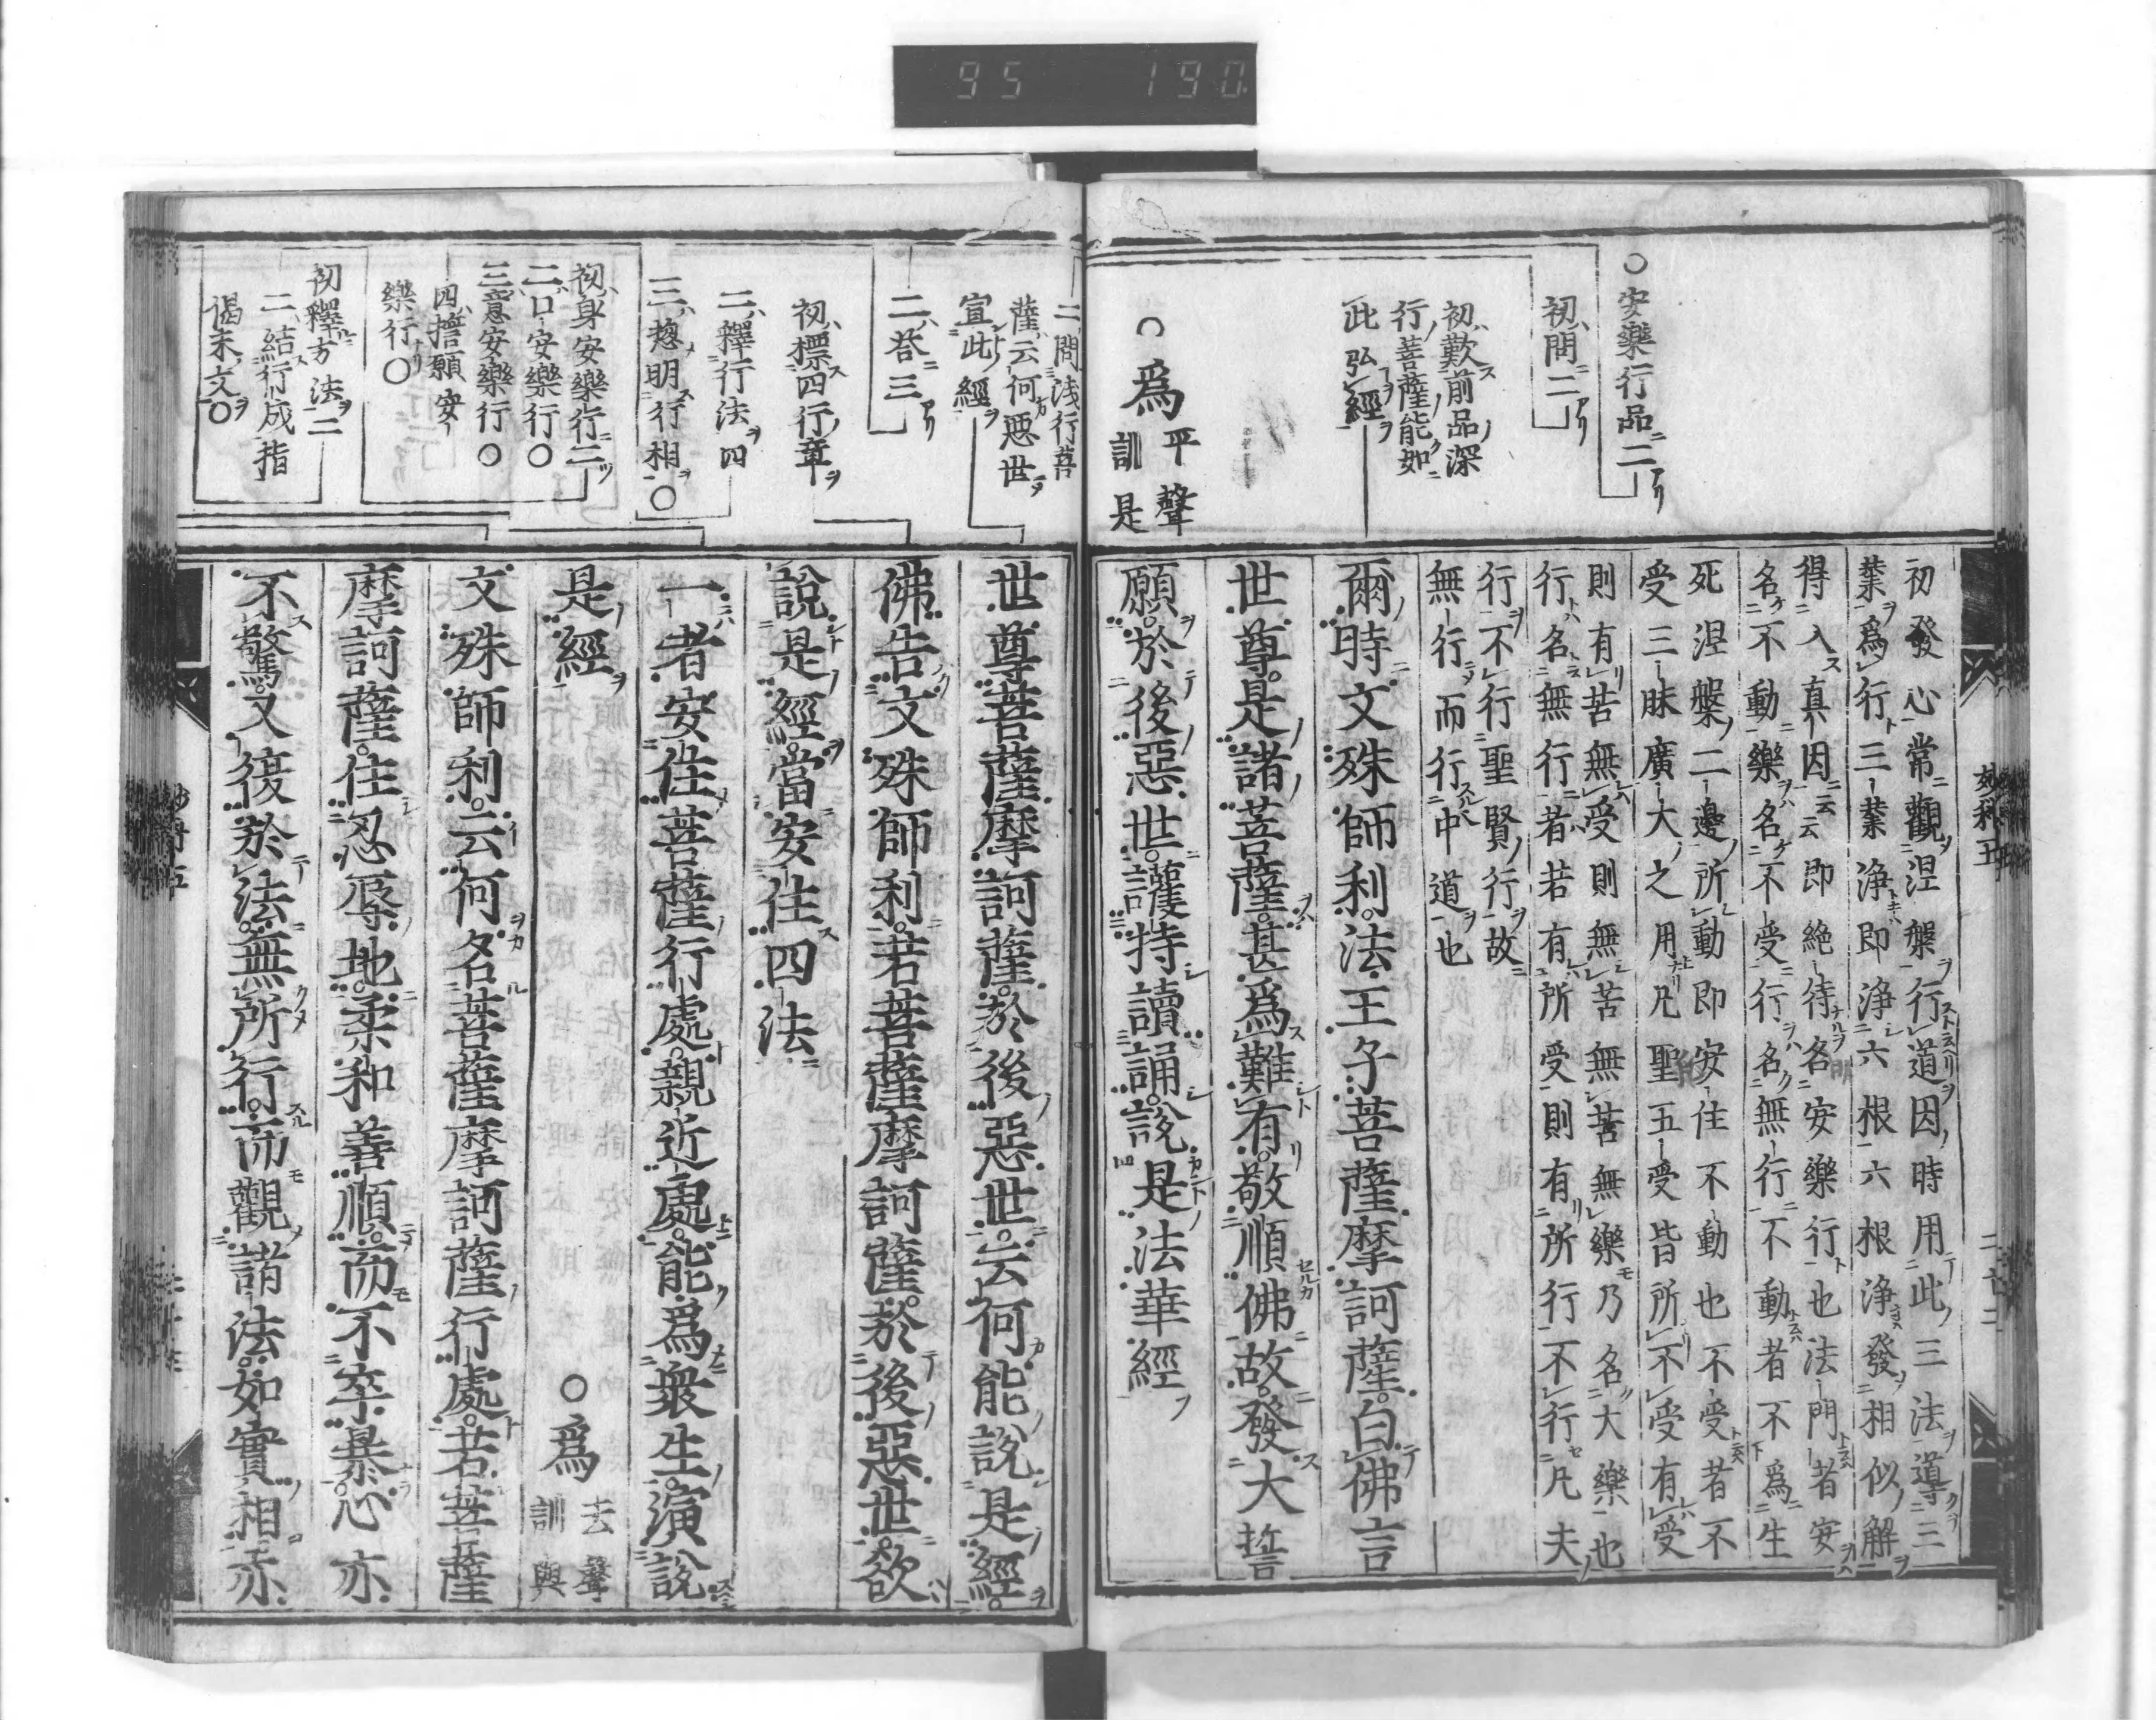 95 190
○安樂行品二
初問二
初歎前品深
行菩薩能如
此弘經
○爲平聲
訓是
初發心常觀涅槃行道因時用此三法導三
業爲行三業淨即淨六根六根淨發相似解
得入真因云云即絶待名安樂行也法門者安
名不動樂名不受行名無行不動者不爲生
死涅槃二邊所動即安住不動也不受者不
受三昧廣大之用凡聖五受皆所不受有受
則有苦無受則無苦無苦無樂乃名大樂也
行名無行者若有所受則有所行不行凡夫
行不行聖賢行故
無行而行中道也
爾時文殊師利法王子菩薩摩訶薩白佛言
世尊是諸菩薩甚爲難有敬順佛故發大誓
願於後惡世護持讀誦說是法華經
妙科五
二十二
二問淺行菩
薩云何惡世
宣此經
二答三
初標四行章
二釋行法四
三總明行相○
初身安樂行二
二口安樂行○
三意安樂行○
四誓願安
樂行○
初釋方法二
二結行成指
偈末文○
世尊菩薩摩訶薩於後惡世云何能說是經
佛告文殊師利若菩薩摩訶薩於後惡世欲
說是經當安住四法
一者安住菩薩行處親近處能爲衆生演說
是經
○爲去聲
訓與
文殊師利云何名菩薩摩訶薩行處若菩薩
摩訶薩住忍辱地柔和善順而不卒暴心亦
不驚又復於法無所行而觀諸法如實相亦